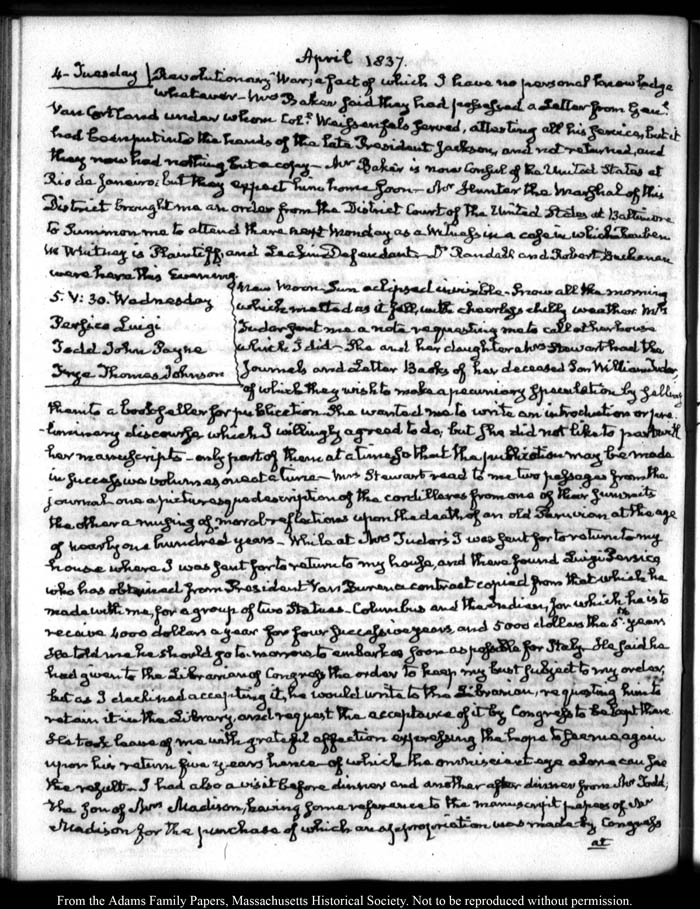 April 1837.
4. Tuesday Revolutionary War; a fact of which I have no personal knowledge
whatever— Mrs Baker said they had possessed a Letter from Genl.
Van Cortland under whom Coll. Weissenfels served, attesting all his service, but it
had been put into the hands of the late President Jackson, and not returned, and
they now had nothing but a copy— Mr Baker is now Consul of the United States at
Rio de Janeiro; but they expect him home soon— Mr Hunter the Marshal of this
District brought me an order from the District Court of the United States at Baltimore
to summon me to attend there next Monday as a Witness in a case in which Reuben
W Whitney is Plaintiff, and Defendant. Dr Randall and Robert Buchanan
were here this Evening.
5. V: 30. Wednesday
Persico Luigi
Todd John Payne
Inge Thomas Johnson
New Moon— Sun eclipsed invisible— Snow all the morning
which melted as it fell, with cheerless chilly weather. Mrs
Tudor sent me a note requesting me to call at her house
which I did— She and her daughter Mrs Stewart had the
Journals and Letter Books of her deceased Son William Tudor,
of which they wish to make a pecuniary speculation by selling
them to a bookseller for publication. She wanted me to write an introduction or pre-
-liminary discourse which I willingly agreed to do; but she did not like to part with
her manuscripts— only part of them at a time so that the publication may be made
in successive volumes one at a time— Mrs Stewart read to me two passages from the
journal— one a picturesque description of the cordilleras from one of their summits
the other a musing of moral reflections upon the death of an old Peruvian at the age
of nearly one hundred years— While at Mrs Tudor's I was sent for to return to my
house where I was sent for to return to my house, and there found Luigi Persico
who has obtained from President Van Buren a contract copied from that which he
made with me, for a group of two Statues— Columbus and the Indian, for which he is to
receive 4000 dollars a year for four successive years, and 5000 dollars the 5th. year.
He told me he should go to-morrow to embark as soon as possible for Italy. He said he
had given to the Librarian of Congress the order to keep my bust subject to my order,
but as I declined accepting it, he would write to the Librarian, requesting him to
retain it in the Library, and request the acceptance of it by Congress to be kept there
He took leave of me with grateful affection expressing the hope to see me again
upon his return five years hence— of which the omniscient eye alone can see
the result— I had also a visit before dinner and another after dinner from Mr Todd;
the Son of Mrs Madison, having some reference to the manuscript papers of Mr
Madison for the purchase of which an appropriation was made by Congress
at
From the Adams Family Papers, Massachusetts Historical Society. Not to be reproduced without permission.